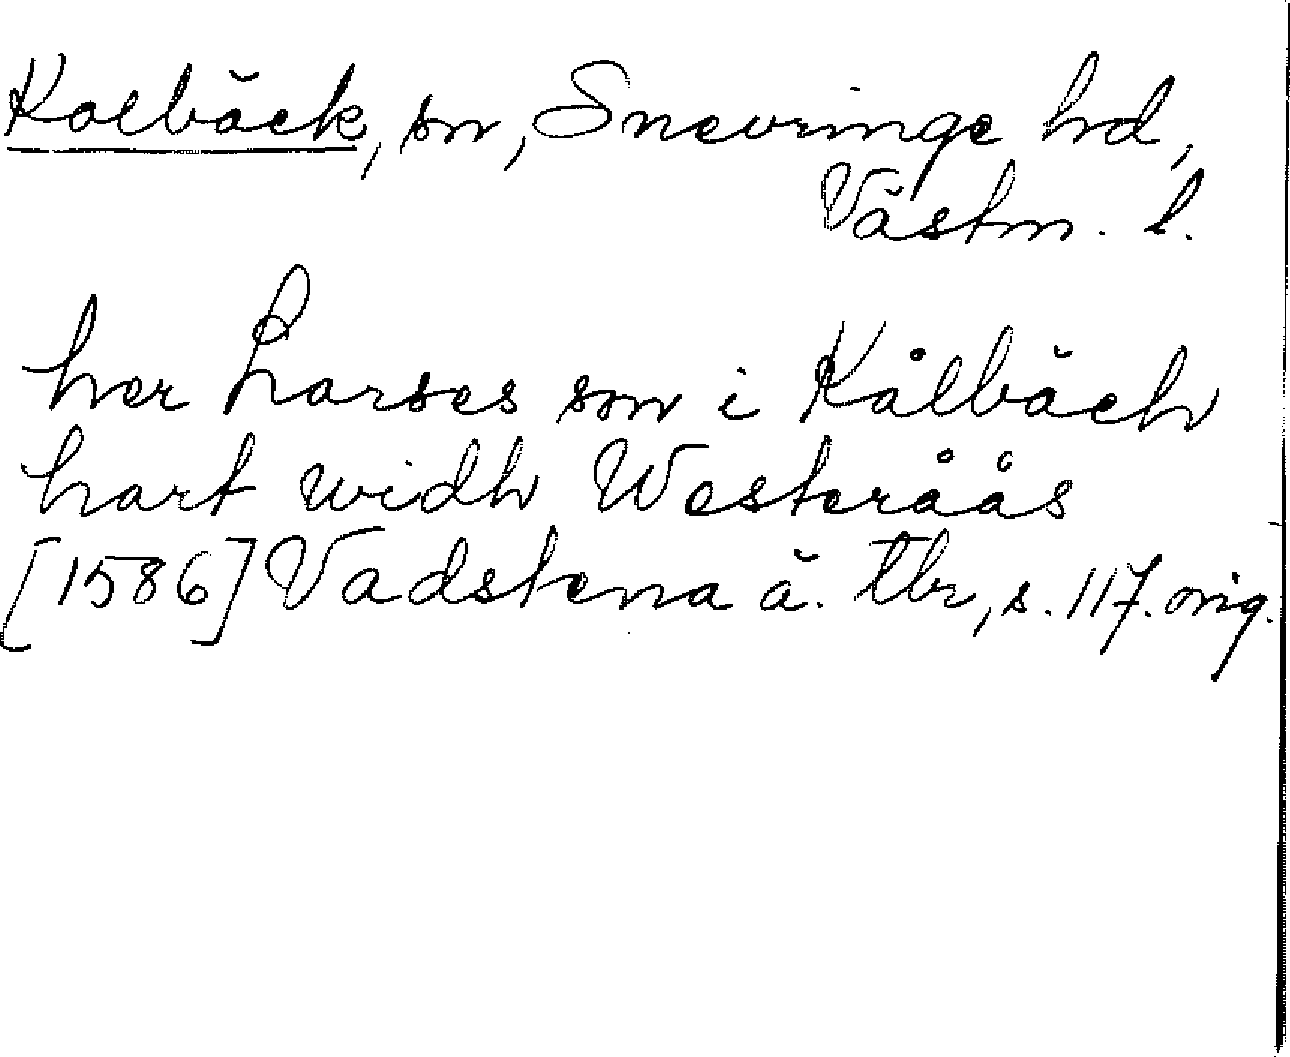 Kolbäck, sn, Snevringe hd,
Västm. l.
her Larses son i Kålbäch
hart widh Westeråås
[1586] Vadstena ä. tbr, s. 117. orig.